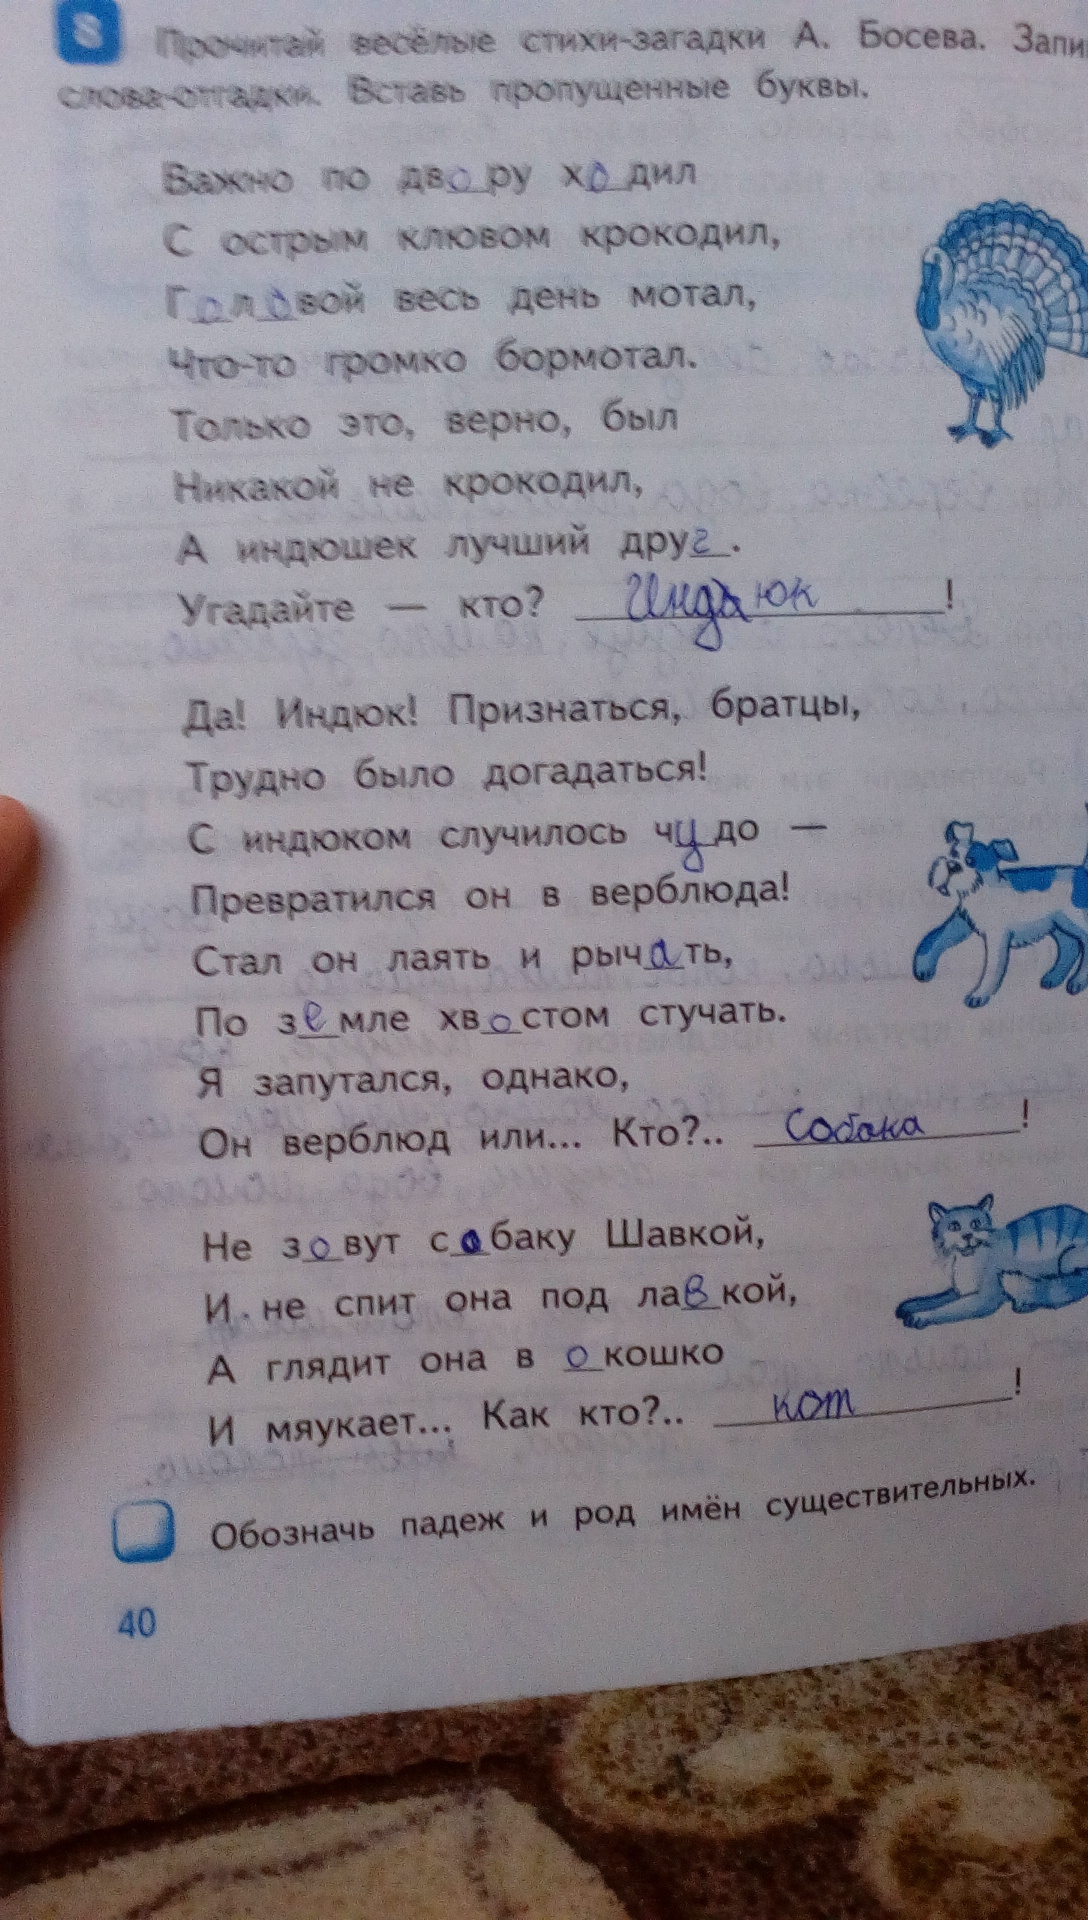 8 Прочитай весёлые стихи-загадки А. Босева. Запи
слова-отгадки. Вставь пропущенные буквы.
Важно по двору ходил
С острым клювом крокодил,
Головой весь день мотал,
Что-то громко бормотал.
Только это, верно, был
Никакой не крокодил,
А индюшек лучший друг.
Угадайте — кто? Индюк!
Да! Индюк! Признаться, братцы,
Трудно было догадаться!
С индюком случилось чудо —
Превратился он в верблюда!
Стал он лаять и рычать,
По земле хвостом стучать.
Я запутался, однако,
Он верблюд или... Кто?.. Собака!
Не зовут собаку Шавкой,
И не спит она под лавкой,
А глядит она в окошко
И мяукает... Как кто?.. кот!
Обозначь падеж и род имён существительных.
40